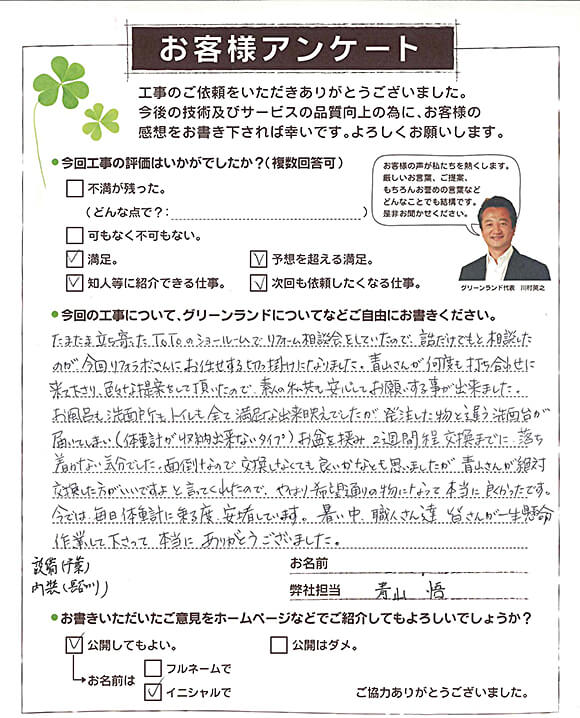 お客様アンケート
工事のご依頼をいただきありがとうございました。
今後の技術及びサービスの品質向上の為に、お客様の
感想をお書き下されば幸いです。よろしくお願いします。
●今回工事の評価はいかがでしたか?(複数回答可)
不満が残った。
(どんな点で?: )
可もなく不可もない。
満足。 予想を超える満足。
知人等に紹介できる仕事。 次回も依頼したくなる仕事。
お客様の声が私たちを熱くします。
厳しいお言葉、ご提案、
もちろんお誉めの言葉など
どんなことでも結構です。
是非お聞かせください。
グリーンランド代表 川村英之
●今回の工事について、グリーンランドについてなどご自由にお書きください。
たまたま立ち寄ったTOTOのショールームでリフォーム相談会をしていたので、話だけでもと相談した
のが、今回リフォラボさんにお任せする切っ掛けになりました。青山さんが何度も打ち合わせに
来て下さり、色々な提案をして頂いたので、素人の私共も安心してお願いする事が出来ました。
お風呂も洗面所もトイレも全て満足な出来映えでしたが、発注した物と違う洗面台が
届いてしまい(体重計が収納出来ないタイプ)お盆を挟み2週間程交換までに落ち
着かない気分でした。面倒なので交換しなくても良いかなとも思いましたが青山さんが絶対
交換した方がいいですよと言ってくれたので、やはり希望通りの物になって本当に良かったです。
今では毎日体重計に乗る度、安堵しています。暑い中、職人さん達、皆さんが一生懸命
作業して下さって本当にありがとうございました。
設備(千葉)
内装(長谷川)
お名前
弊社担当 青山 悟
●お書きいただいたご意見をホームページなどでご紹介してもよろしいでしょうか?
公開してもよい。 公開はダメ。
お名前は フルネームで
イニシャルで
ご協力ありがとうございました。